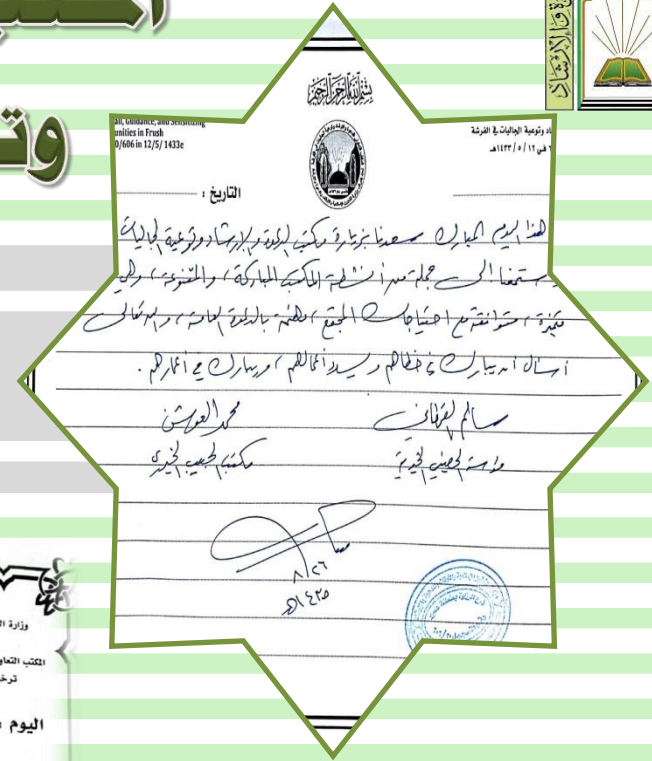 وتو
بسم الله الرحمن الرحيم
Guidance, and Sensitizing
unities in Frush
0/606 in 12/5/ 1433e
اد وتوعية الجاليات في الفرشة
في ١٢ / ٥ / ١٤٣٣هـ
التاريخ :
لهذا اليوم المبارك سعدنا بزيارة مكتب الدعوة والإرشاد وتوعية الجاليات
استمعنا إلى جملة من أنشطة المكتب المباركة، والمتنوعة، وهي
متميزة، متوافقة مع احتياجات المجتمع، مهتمة بالدعوة العامة، والله تعالى
أسأل أن يبارك في خطاهم ويسدد أعمالهم، ويبارك في أعمارهم.
سالم القحطاني
محمد العوشن
مؤسسة الحصيني الخيرية
مكتب الخيري
٨/٢٦
١٤٣٥هـ
وزارة ال
المكتب التعاو
ترخ
اليوم :